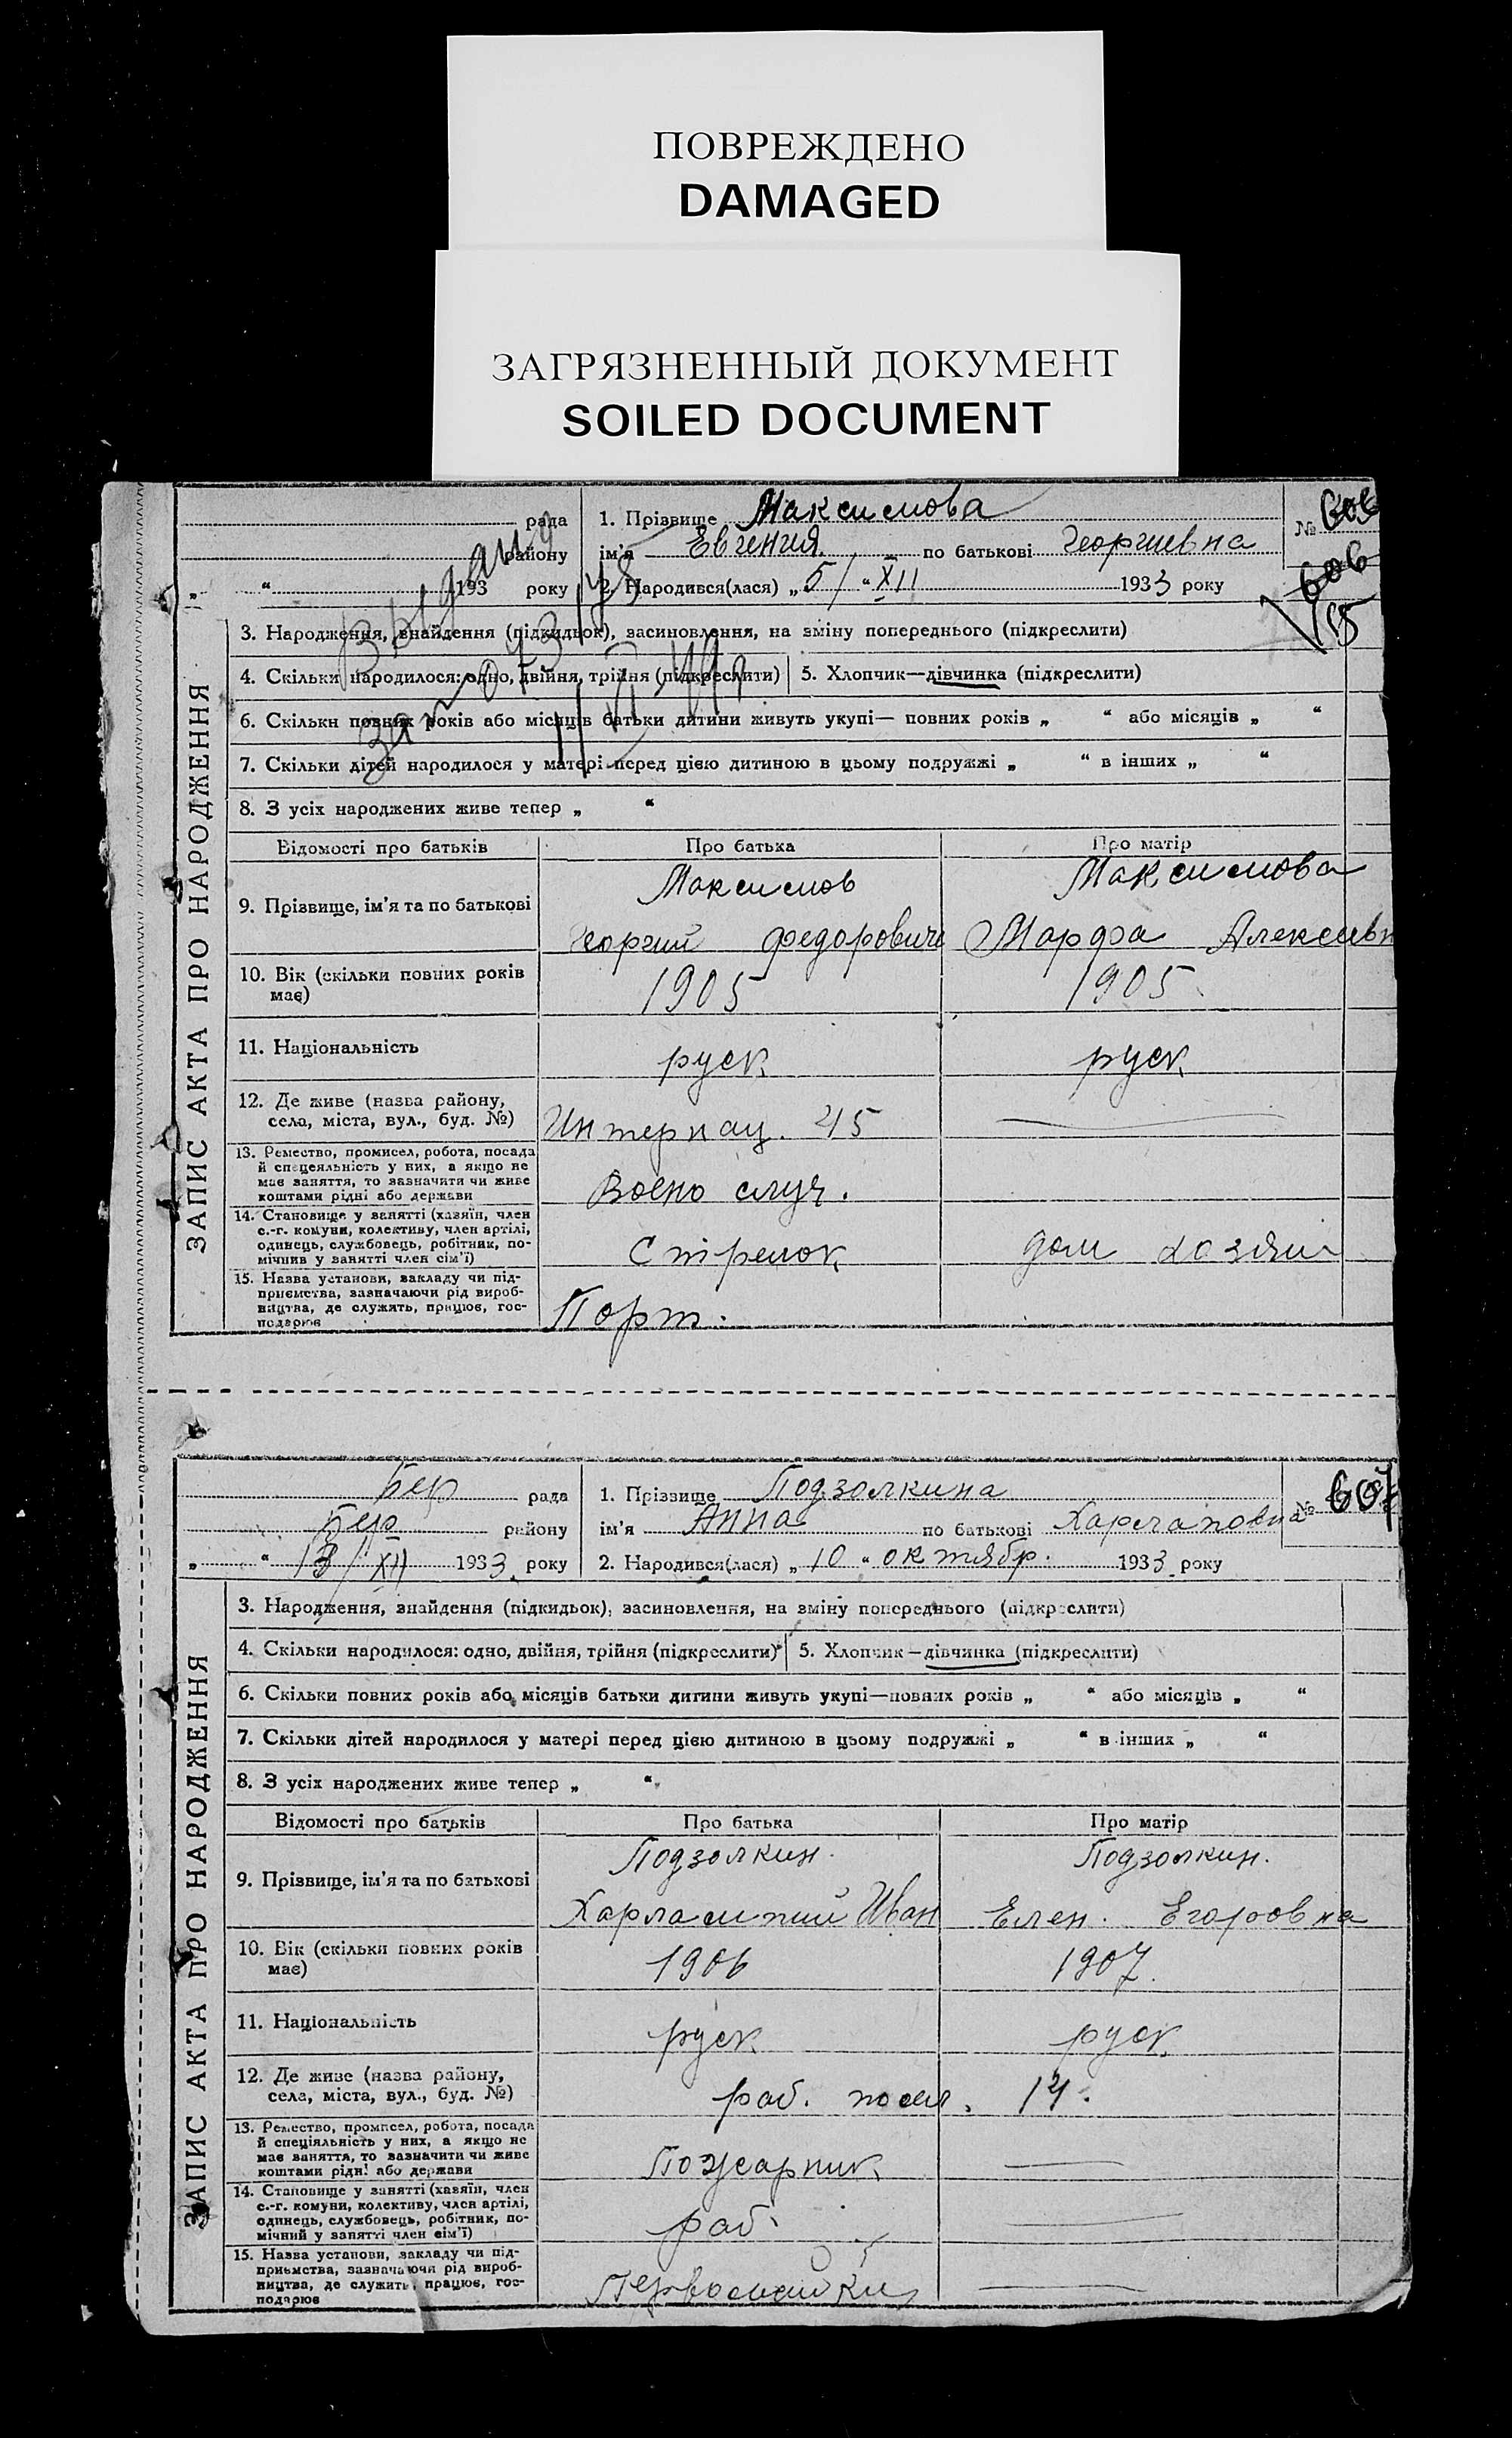 ПОВРЕЖДЕНО
DAMAGED
ЗАГРЯЗНЕННЫЙ ДОКУМЕНТ
SOILED DOCUMENT
ЗАПИС АКТА ПРО НАРОДЖЕННЯ
рада
району
„ “ 193 року
1. Прізвище Максимова
ім'я Евгения по батькові Георгиевна
2. Народився(лася) „5/“ XII 1933 року
№ 606
606
3. Народження, знайдення (підкидьок), засиновлення, на зміну попереднього (підкреслити)
4. Скільки народилося: одно, двійня, трійня (підкреслити)
5. Хлопчик—дівчинка (підкреслити)
6. Скільки повних років або місяців батьки дитини живуть укупі— повних років „ “ або місяців „ “
7. Скільки дітей народилося у матері перед цією дитиною в цьому подружжі „ “ в інших „ “
8. З усіх народжених живе тепер „ “
Відомості про батьків Про батька Про матір
9. Прізвище, ім'я та по батькові
Максимов Максимова
Георгий Федорович Марфа Алексеевн
10. Вік (скільки повних років
має)
1905 1905
11. Національність руск руск
12. Де живе (назва району,
села, міста, вул., буд. №)
Интернац. 45
13. Ремество, промисел, робота, посада
й спеціяльність у них, а якщо не
має заняття, то зазначити чи живе
коштами рідні або держави
Воено служ.
14. Становище у занятті (хазяїн, член
с.-г. комуни, колективу, член артілі,
одинець, службовець, робітник, по-
мічний у занятті член сім'ї)
Стрелок дом хозяй
15. Назва установи, закладу чи під-
приємства, зазначаючи рід вироб-
ництва, де служить, працює, гос-
подарює
Порт.
ЗАПИС АКТА ПРО НАРОДЖЕННЯ
Бер рада
Бер району
„ “ 13/XII 1933 року
1. Прізвище Подзолкина
ім'я Анна по батькові Харлаповна
2. Народився(лася) „10“ октябр. 1933 року
№ 607
3. Народження, знайдення (підкидьок), засиновлення, на зміну попереднього (підкреслити)
4. Скільки народилося: одно, двійня, трійня (підкреслити)
5. Хлопчик—дівчинка (підкреслити)
6. Скільки повних років або місяців батьки дитини живуть укупі—повних років „ “ або місяців „ “
7. Скільки дітей народилося у матері перед цією дитиною в цьому подружжі „ “ в інших „ “
8. З усіх народжених живе тепер „ “
Відомості про батьків Про батька Про матір
9. Прізвище, ім'я та по батькові
Подзолкин. Подзолкин.
Харлампий Иван Елен. Егоровна
10. Вік (скільки повних років
має)
1906 1907.
11. Національність руск руск
12. Де живе (назва району,
села, міста, вул., буд. №)
раб. посел. 14.
13. Ремество, промисел, робота, посада
й спеціяльність у них, а якщо не
має заняття, то зазначити чи живе
коштами рідні або держави
Пожарник
14. Становище у занятті (хазяїн, член
с.-г. комуни, колективу, член артілі,
одинець, службовець, робітник, по-
мічний у занятті член сім'ї)
раб.
15. Назва установи, закладу чи під-
приємства, зазначаючи рід вироб-
ництва, де служить, працює, гос-
подарює
Первомайки